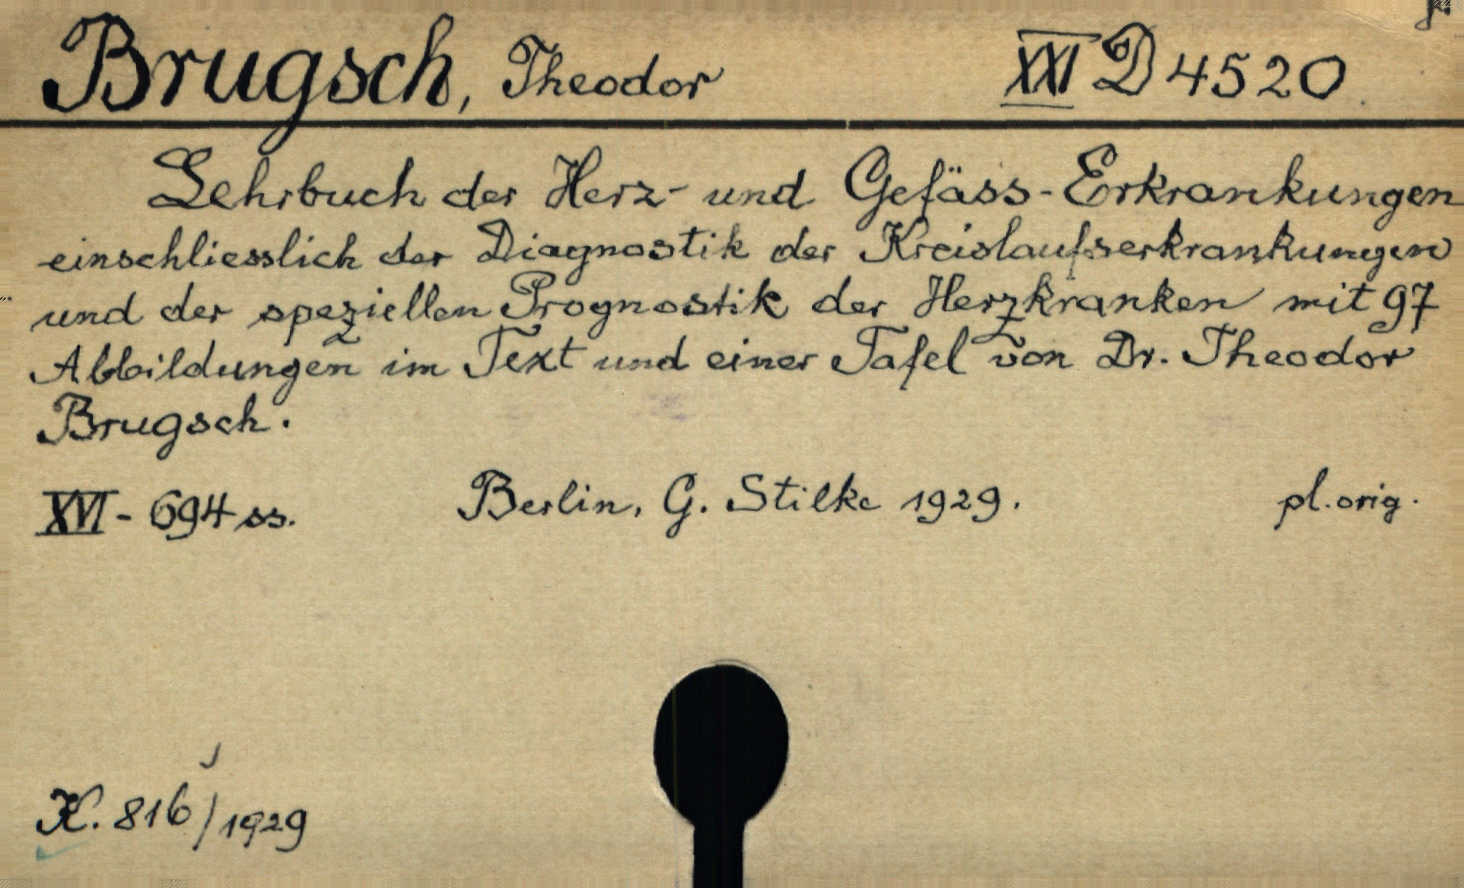 Brugsch, Theodor XXI D 4520
Lehrbuch der Herz- und Gefäss-Erkrankungen
einschliesslich der Diagnostik der Kreislaufserkrankungen
und der speziellen Prognostik der Herzkranken mit 97
Abbildungen im Text und einer Tafel von Dr. Theodor
Brugsch.
XVI - 694 ss. Berlin, G. Stilke 1929. pl. orig.
K. 816/1929